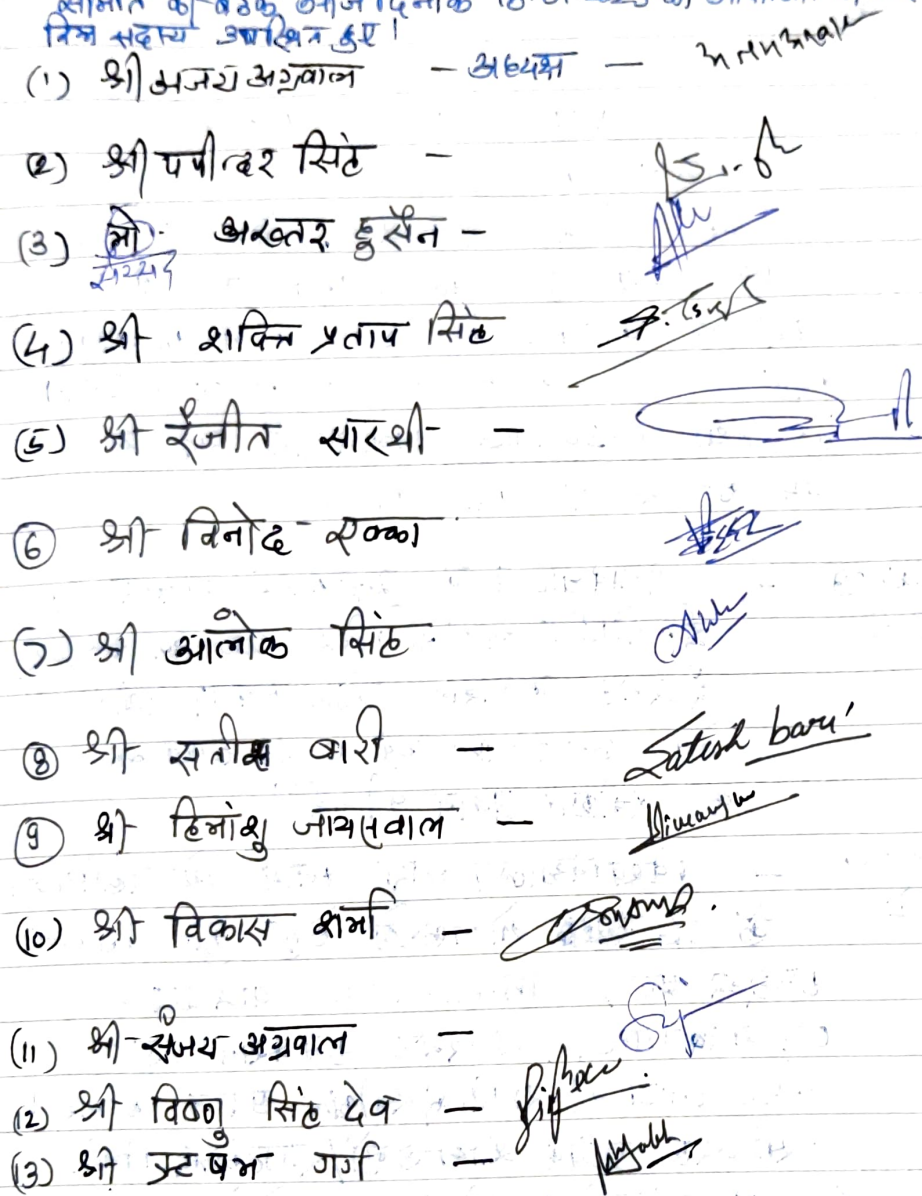 समिति की बैठक आज दिनांक
निम्न सदस्य उपस्थित हुए।
(1) श्री अजय अग्रवाल - अध्यक्ष -
(2) श्री पपीन्दर सिंह -
(3) मो. अख्तर हुसैन -
(4) श्री शक्ति प्रताप सिंह
(5) श्री रंजीत सारथी -
(6) श्री विनोद एक्का
(7) श्री आलोक सिंह
(8) श्री सतीश बारी - Satish bari
(9) श्री हिमांशु जायसवाल - Himanshu
(10) श्री विकास शर्मा -
(11) श्री संजय अग्रवाल -
(12) श्री विष्णु सिंह देव -
(13) श्री ऋषभ गर्ग -